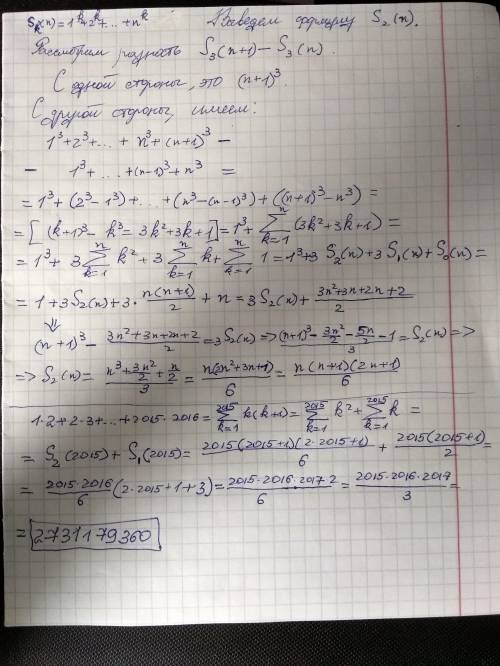 S_k(n)=1^k+2^k...+n^k Выведем формулу S_2(n).
Рассмотрим разность S_3(n+1)-S_3(n).
С одной стороны, это (n+1)^3
С другой стороны, имеем:
1^3+2^3+...+n^3+(n+1)^3-
- 1^3+...+(n-1)^3+n^3 =
=1^3+(2^3-1^3)+...+(n^3-(n-1)^3)+((n+1)^3-n^3)=
=[(k+1)^3-k^3=3k^2+3k+1]=1^3+∑_{k=1}^{n}(3k^2+3k+1)=
=1^3+3∑_{k=1}^{n}k^2+3∑_{k=1}^{n}k+∑_{k=1}^{n}1=1^3+3S_2(n)+3S_1(n)+S_0(n)=
=1+3S_2(n)+3·n(n+1)/2+n=3S_2(n)+(3n^2+3n+2n+2)/2
⇓
(n+1)^3-(3n^2+3n+2n+2)/2=3S_2(n)=>((n+1)^3-3n^2/2-5n/2-1)=S_2(n)=>
=>S_2(n)=(n^3+3n^2/2+n/2)/3=n(2n^2+3n+1)/6=n(n+1)(2n+1)/6
1·2+2·3+...+2015·2016=∑_{k=1}^{2015}k(k+1)=∑_{k=1}^{2015}k^2+∑_{k=1}^{2015}k=
=S_2(2015)+S_1(2015)=2015(2015+1)(2·2015+1)/6+2015(2015+1)/2=
=2015·2016/6(2·2015+1+3)=2015·2016·2017·2/6=2015·2016·2017/3=
=2731179360